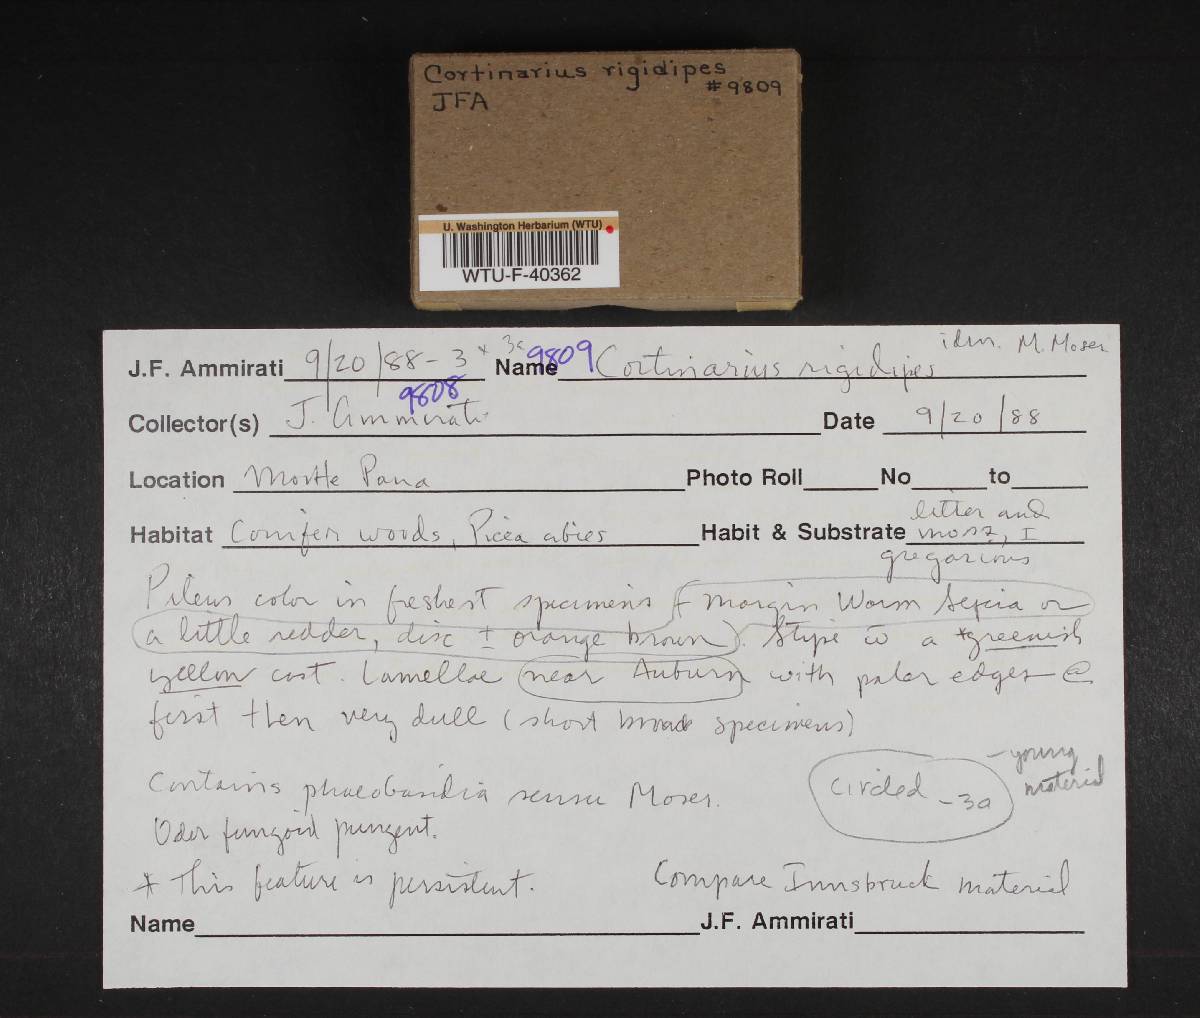 Cortinarius rigidipes
JFA #9809
U. Washington Herbarium (WTU)
WTU-F-40362
idem. M. Moser
J.F. Ammirati 9/20/88-3 * 3a Name 9809 Cortinarius rigidipes
9808
Collector(s) J. Ammirati Date 9/20/88
Location Monte Pana Photo Roll No to
Habitat Conifer woods, Picea abies Habit & Substrate litter and
moss, I
gregarious
Pileus color in freshest specimens (margin Warm Sepia or
a little redder, disc ± orange brown). Stipe w a *greenish
yellow cast. Lamellae (near Auburn) with paler edges @
first then very dull (short broad specimens)
Contains phaeobasidia sensu Moser.
circled -3a
- young
material
Odor fungoid pungent.
* This feature is persistent. Compare Innsbruck material
Name J.F. Ammirati